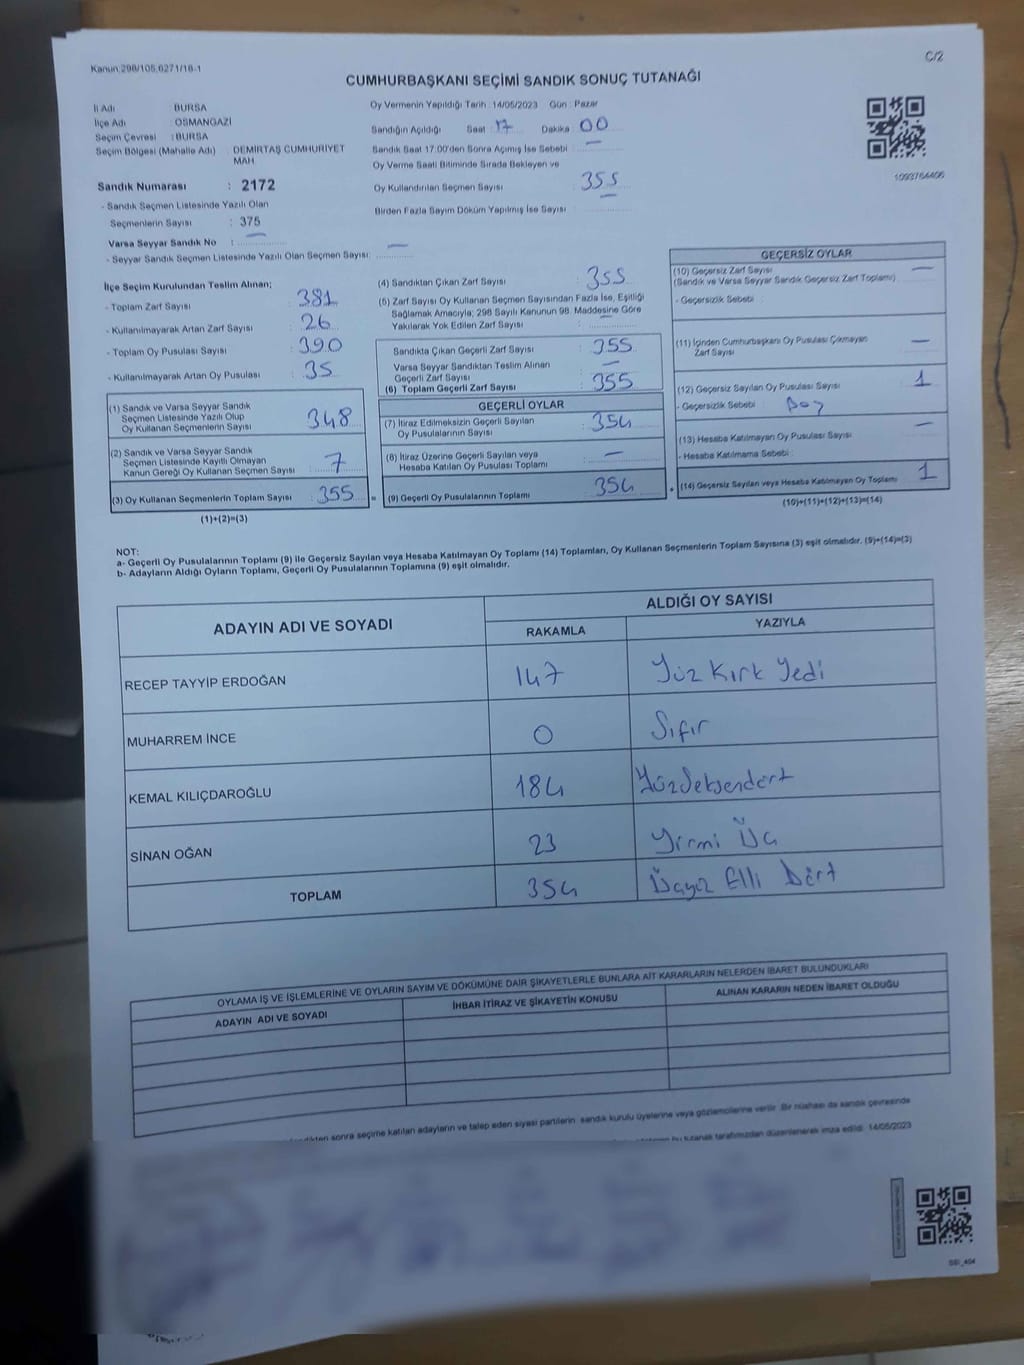 Kanun:298/105,6271/18-1
C/2
CUMHURBAŞKANI SEÇİMİ SANDIK SONUÇ TUTANAĞI
İl Adı : BURSA
İlçe Adı : OSMANGAZİ
Seçim Çevresi : BURSA
Seçim Bölgesi (Mahalle Adı) : DEMİRTAŞ CUMHURİYET MAH
Sandık Numarası : 2172
- Sandık Seçmen Listesinde Yazılı Olan
Seçmenlerin Sayısı : 375
Varsa Seyyar Sandık No : —
- Seyyar Sandık Seçmen Listesinde Yazılı Olan Seçmen Sayısı: —
Oy Vermenin Yapıldığı Tarih : 14/05/2023 Gün : Pazar
Sandığın Açıldığı Saat : 17 Dakika : 00
Sandık Saat 17:00'den Sonra Açımış İse Sebebi : —
Oy Verme Saati Bitiminde Sırada Bekleyen ve
Oy Kullandırılan Seçmen Sayısı : 355
Birden Fazla Sayım Döküm Yapılmış İse Sayısı : —
1093764406
İlçe Seçim Kurulundan Teslim Alınan;
- Toplam Zarf Sayısı : 381
- Kullanılmayarak Artan Zarf Sayısı : 26
- Toplam Oy Pusulası Sayısı : 390
- Kullanılmayarak Artan Oy Pusulası : 35
(1) Sandık ve Varsa Seyyar Sandık
Seçmen Listesinde Yazılı Olup
Oy Kullanan Seçmenlerin Sayısı : 348
(2) Sandık ve Varsa Seyyar Sandık
Seçmen Listesinde Kayıtlı Olmayan
Kanun Gereği Oy Kullanan Seçmen Sayısı : 7
(3) Oy Kullanan Seçmenlerin Toplam Sayısı : 355 =
(1)+(2)=(3)
(4) Sandıktan Çıkan Zarf Sayısı : 355
(5) Zarf Sayısı Oy Kullanan Seçmen Sayısından Fazla İse, Eşitliği
Sağlamak Amacıyla; 298 Sayılı Kanunun 98. Maddesine Göre
Yakılarak Yok Edilen Zarf Sayısı :
Sandıkta Çıkan Geçerli Zarf Sayısı : 355
Varsa Seyyar Sandıktan Teslim Alınan
Geçerli Zarf Sayısı : —
(6) Toplam Geçerli Zarf Sayısı : 355
GEÇERLİ OYLAR
(7) İtiraz Edilmeksizin Geçerli Sayılan
Oy Pusulalarının Sayısı : 354
(8) İtiraz Üzerine Geçerli Sayılan veya
Hesaba Katılan Oy Pusulası Toplamı : —
(9) Geçerli Oy Pusulalarının Toplamı : 354 +
GEÇERSİZ OYLAR
(10) Geçersiz Zarf Sayısı : —
(Sandık ve Varsa Seyyar Sandık Geçersiz Zarf Toplamı)
- Geçersizlik Sebebi :
(11) İçinden Cumhurbaşkanı Oy Pusulası Çıkmayan
Zarf Sayısı : —
(12) Geçersiz Sayılan Oy Pusulası Sayısı : 1
- Geçersizlik Sebebi : Boş
(13) Hesaba Katılmayan Oy Pusulası Sayısı : —
- Hesaba Katılmama Sebebi :
(14) Geçersiz Sayılan veya Hesaba Katılmayan Oy Toplamı : 1
(10)+(11)+(12)+(13)=(14)
NOT:
a- Geçerli Oy Pusulalarının Toplamı (9) ile Geçersiz Sayılan veya Hesaba Katılmayan Oy Toplamı (14) Toplamları, Oy Kullanan Seçmenlerin Toplam Sayısına (3) eşit olmalıdır. (9)+(14)=(3)
b- Adayların Aldığı Oyların Toplamı, Geçerli Oy Pusulalarının Toplamına (9) eşit olmalıdır.
ADAYIN ADI VE SOYADI
ALDIĞI OY SAYISI
RAKAMLA YAZIYLA
RECEP TAYYİP ERDOĞAN 147 Yüz Kırk Yedi
MUHARREM İNCE 0 Sıfır
KEMAL KILIÇDAROĞLU 184 Yüzseksendört
SİNAN OĞAN 23 Yirmi Üç
TOPLAM 354 Üçyüz Elli Dört
OYLAMA İŞ VE İŞLEMLERİNE VE OYLARIN SAYIM VE DÖKÜMÜNE DAİR ŞİKAYETLERLE BUNLARA AİT KARARLARIN NELERDEN İBARET BULUNDUKLARI
ADAYIN ADI VE SOYADI İHBAR İTİRAZ VE ŞİKAYETİN KONUSU ALINAN KARARIN NEDEN İBARET OLDUĞU
sonra seçime katılan adayların ve talep eden siyasi partilerin sandık kurulu üyelerine veya gözlemcilerine verilir. Bir nüshası da sandık çevresinde
bu tutanak tarafımızdan düzenlenerek imza edildi. 14/05/2023